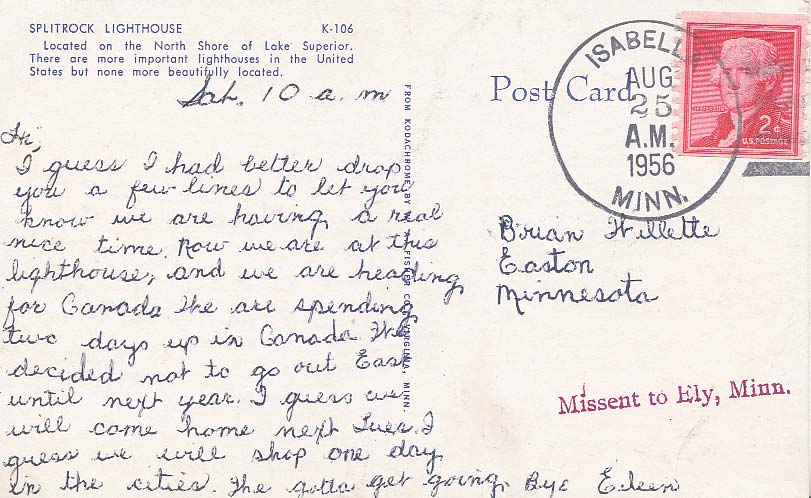 SPLITROCK LIGHTHOUSE K-106
Located on the North Shore of Lake Superior.
There are more important lighthouses in the United
States but none more beautifully located.
Sat. 10 a.m
Hi,
I guess I had better drop
you a few lines to let you
know we are having a real
nice time. Now we are at this
lighthouse, and we are heading
for Canada. We are spending
two days up in Canada. We
decided not to go out East
until next year. I guess we
will come home next Tues. I
guess we will shop one day
in the cities. We gotta get going. Bye Eileen
FROM KODACHROME BY W. FISHER CO. VIRGINIA, MINN.
Post Card
ISABELLA
AUG
25
A.M.
1956
MINN.
2¢
U.S. POSTAGE
Brian Willette
Easton
Minnesota
Missent to Ely, Minn.